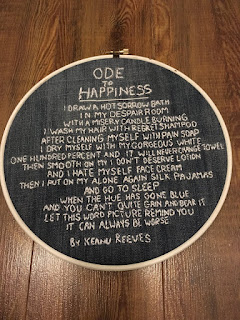 ODE
TO
HAPPINESS
I DRAW A HOT SORROW BATH
IN MY DESPAIR ROOM
WITH A MISERY CANDLE BURNING
I WASH MY HAIR WITH REGRET SHAMPOO
AFTER CLEANING MYSELF WITH PAIN SOAP
I DRY MYSELF WITH MY GORGEOUS WHITE
ONE HUNDRED PERCENT AND IT WILL NEVER CHANGE TOWEL
THEN SMOOTH ON MY I DON'T DESERVE LOTION
AND I HATE MYSELF FACE CREAM
THEN I PUT ON MY ALONE AGAIN SILK PAJAMAS
AND GO TO SLEEP
WHEN THE HUE HAS GONE BLUE
AND YOU CAN'T QUITE GRIN AND BEAR IT
LET THIS WORD PICTURE REMIND YOU
IT CAN ALWAYS BE WORSE
BY KEANU REEVES